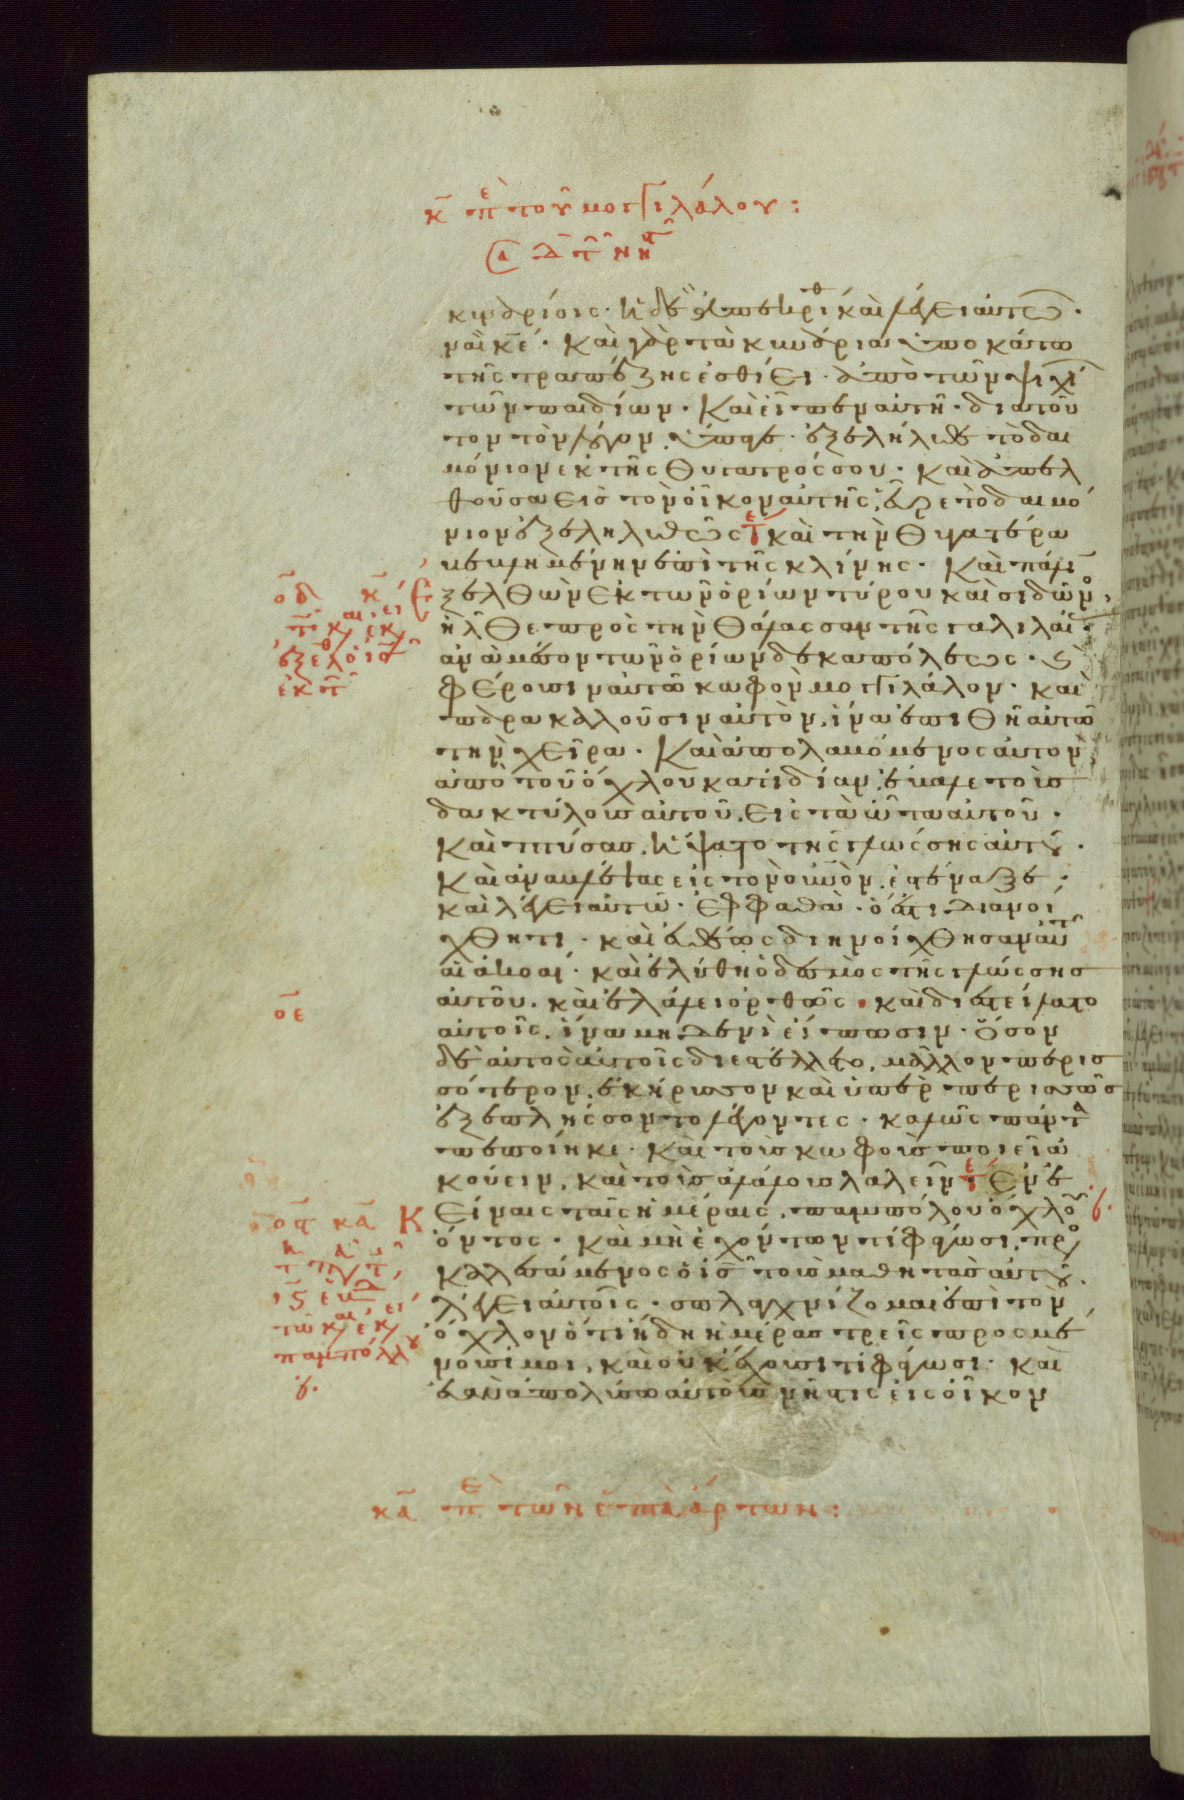 κ̅ πε τοῦ μογγιλάλου:
κυναρίοις· ἡ δὲ ἀπεκρίθ καὶ λέγει αὐτῶ·
ναὶ κε̅· καὶ γὰρ τὰ κυνάρια ὑποκάτω
τῆς τραπέζης ἐσθίει· ἀπὸ τῶν ψιχί
τῶν παιδίων· Καὶ εἶπεν αὐτῆ· διὰ τοῦ
τον τὸν λόγον, ὕπαγε· ἐξελήλυθε τὸ δαι
μόνιον ἐκ τῆς θυγατρός σου· καὶ ἀπελ
θοῦσα εἰς τὸν οἶκον αὐτῆς, εὗρε τὸ δαιμό
νιον ἐξεληλυθῶς τε καὶ τὴν θυγατέρα
κειμένην ἐπὶ τῆς κλίνης· Καὶ πάλιν
οδ κ̅ ἐξελθὼν ἐκ τῶν ὁρίων τύρου καὶ σιδῶνο,
ἦλθε πρὸς τὴν θάλασσαν τῆς γαλιλαί
ἀνὰ μέσον τῶν ὁρίων δεκαπόλεως· ϛ
φέρουσιν αὐτῶ κωφὸν μογγιλάλον· καὶ
παρακαλοῦσιν αὐτὸν, ἵνα ἐπιθῆ αὐτῶ
τὴν χεῖρα· Καὶ ἀπολαβόμενος αὐτὸν
ἀπὸ τοῦ ὄχλου κατιδίαν, ἔβαλε τοὺς
δακτύλους αὐτοῦ, εἰς τὰ ὦτα αὐτοῦ·
Καὶ πτύσας, ἥψατο τῆς γλώσσης αὐτοῦ·
Καὶ ἀναβλέψας εἰς τὸν οὐνὸν, ἐστέναξε·
καὶ λέγει αὐτῶ· Ἐφφαθά· ὅ ἐστι διανοί
χθητι· καὶ εὐθέως διηνοίχθησαν αὐτ
αἱ ἀκοαί· καὶ ἐλύθη ὁ δεσμὸς τῆς γλώσσης
οε αὐτοῦ, καὶ ἐλάλει ὀρθῶς· καὶ διεστείλατο
αὐτοῖς, ἵνα μηδενὶ εἴπωσιν· Ὅσον
δὲ αὐτὸς αὐτοῖς διεστέλλετο, μᾶλλον περισ
σότερον, ἐκήρυσσον καὶ ὑπὲρ περισσῶς
ἐξεπλήσσοντο λέγοντες· καλῶς πάντα
πεποίηκε· Καὶ τοὺς κωφοὺς ποιεῖ ἀ
κούειν, καὶ τοὺς ἀλάλους λαλεῖν τε Ἐν ἐ
οϛ κα̅ Κείναις ταῖς ἡμέραις, παμπόλου ὄχλου
ὄντος· καὶ μὴ ἐχόντων τί φάγωσι, προ
καλεσάμενος ὁ ις̅ τοὺς μαθητὰς αὐτοῦ,
λέγει αὐτοῖς· σπλαγχνίζομαι ἐπὶ τὸν
ὄχλον ὅτι ἤδη ἡμέρας τρεῖς προσμέ
νουσί μοι, καὶ οὐκ ἔχουσι τί φάγωσι· καὶ
ἐὰν ἀπολύσω αὐτοὺς νήστις εἰς οἶκον
κα̅ πε τῶν ἑπτὰ ἄρτων: